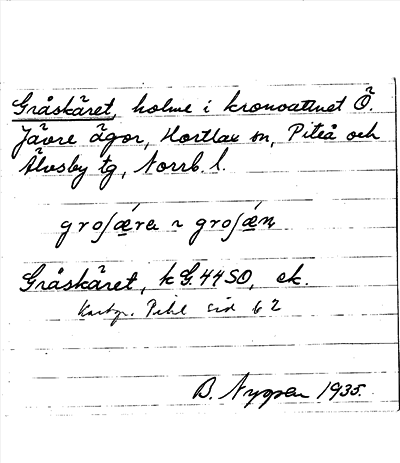 Gråskäret, holme i kronovattnet Ö.
Jävre ägor, Hortlax sn, Piteå och
Älvsby tg, Norrb. l.
groʃæ̀ra ~ groʃæ̀n,
Gråskäret, k G. 44 SO, ek.
Pihl sid 62
B. Nygren 1935.